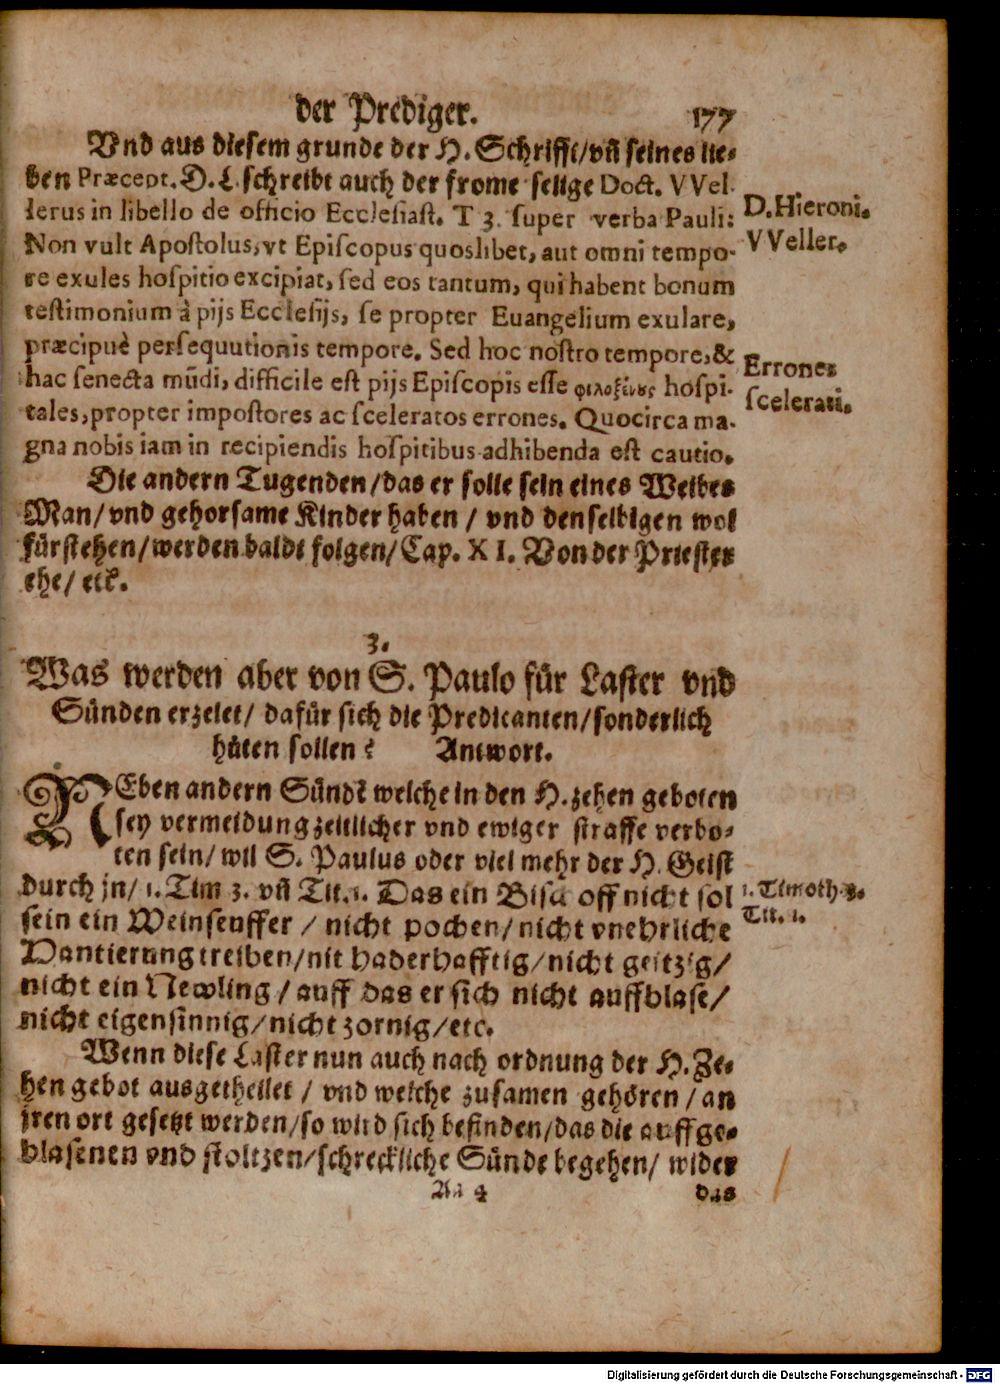 der Prediger. 177
Vnd aus diesem grunde der H. Schrifft/vñ seines lie-
ben Præcept. D. L. schreibt auch der frome selige Doct. VVel-
lerus in libello de officio Ecclesiast. T 3. super verba Pauli:
D. Hieroni.
VVeller.
Non vult Apostolus, vt Episcopus quoslibet, aut omni tempo-
re exules hospitio excipiat, sed eos tantum, qui habent bonum
testimonium à pijs Ecclesijs, se propter Euangelium exulare,
præcipuè persequutionis tempore. Sed hoc nostro tempore, &
Errones
scelerati.
hac senecta mũdi, difficile est pijs Episcopis esse φιλοξένους hospi-
tales, propter impostores ac sceleratos errones. Quocirca ma-
gna nobis iam in recipiendis hospitibus adhibenda est cautio.
Die andern Tugenden/das er solle sein eines Weibes
Man/vnd gehorsame Kinder haben / vnd denselbigen wol
fürstehen/werden baldt folgen/Cap. XI. Von der Priester
ehe/ etc.
3.
Was werden aber von S. Paulo für Laster vnd
Sünden erzelet/ dafür sich die Predicanten/sonderlich
hüten sollen? Antwort.
NEben andern Sündẽ welche in den H. zehen geboten
sey vermeidung zeitlicher vnd ewiger straffe verbo-
ten sein/ wil S. Paulus oder viel mehr der H. Geist
durch jn/ 1. Tim 3. vñ Tit. 1. Das ein Bischoff nicht sol
1. Timoth. 3.
Tit. 1.
sein ein Weinseuffer / nicht pochen/ nicht vnehrliche
Hantierung treiben/nit haderhafftig/nicht geitzig/
nicht ein Newling / auff das er sich nicht auffblase/
nicht eigensinnig/nicht zornig/etc.
Wenn diese Laster nun auch nach ordnung der H. Ze-
hen gebot ausgetheilet / vnd welche zusamen gehören / an
jren ort gesetzt werden/so wird sich befinden/das die auffge-
blasenen vnd stoltzen/schreckliche Sünde begehen/ wider
Aa 4 das
Digitalisierung gefördert durch die Deutsche Forschungsgemeinschaft - DFG